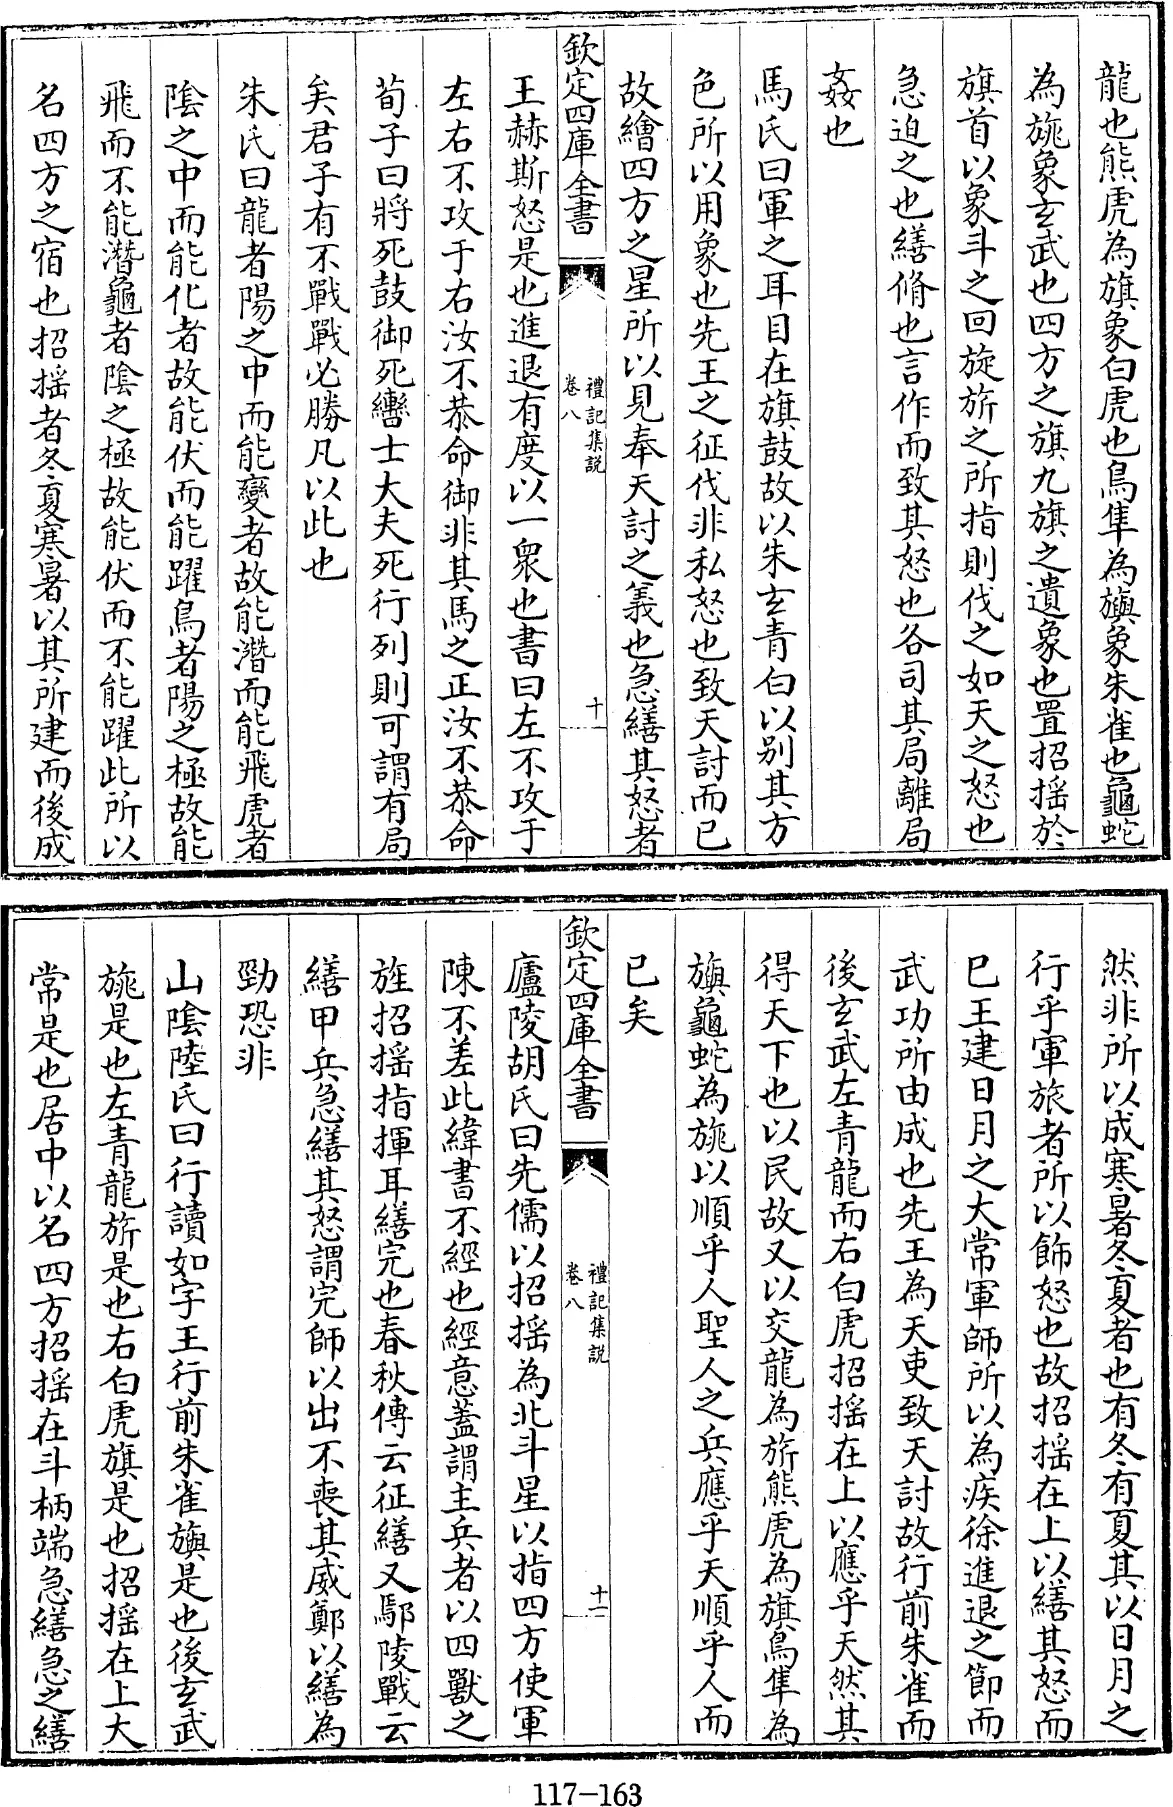 龍也熊虎為旗象白虎也鳥隼為旟象朱雀也龜蛇
為旐象玄武也四方之旗九旗之遺象也置招揺於
旗首以象斗之回旋旂之所指則伐之如天之怒也
急迫之也繕脩也言作而致其怒也各司其局離局
姦也
馬氏曰軍之耳目在旗鼓故以朱玄青白以別其方
色所以用象也先王之征伐非私怒也致天討而已
故繪四方之星所以見奉天討之義也急繕其怒者
欽定四庫全書
禮記集説
卷八
十
王赫斯怒是也進退有度以一衆也書曰左不攻于
左右不攻于右汝不恭命御非其馬之正汝不恭命
荀子曰將死鼓御死轡士大夫死行列則可謂有局
矣君子有不戰戰必勝凡以此也
朱氏曰龍者陽之中而能變者故能潛而能飛虎者
陰之中而能化者故能伏而能躍鳥者陽之極故能
飛而不能潛龜者陰之極故能伏而不能躍此所以
名四方之宿也招揺者冬夏寒暑以其所建而後成
然非所以成寒暑冬夏者也有冬有夏其以日月之
行乎軍旅者所以飾怒也故招揺在上以繕其怒而
巳王建日月之大常軍師所以為疾徐進退之節而
武功所由成也先王為天吏致天討故行前朱雀而
後玄武左青龍而右白虎招揺在上以應乎天然其
得天下也以民故又以交龍為旂熊虎為旗鳥隼為
旟龜蛇為旐以順乎人聖人之兵應乎天順乎人而
已矣
欽定四庫全書
禮記集説
卷八
十一
廬陵胡氏曰先儒以招揺為北斗星以指四方使軍
陳不差此緯書不經也經意蓋謂主兵者以四獸之
旌招揺指揮耳繕完也春秋傳云征繕又鄢陵戰云
繕甲兵急繕其怒謂完師以出不喪其威鄭以繕為
勁恐非
山陰陸氏曰行讀如字王行前朱雀旟是也後玄武
旐是也左青龍旂是也右白虎旗是也招揺在上大
常是也居中以名四方招揺在斗柄端急繕急之繕
117-163